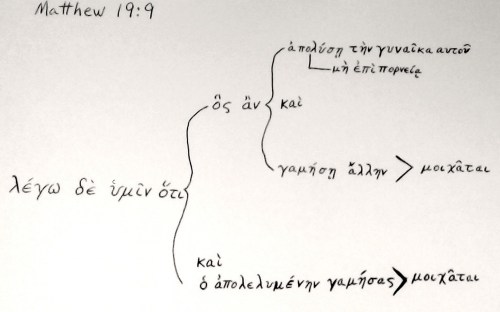 Matthew 19:9
ἀπολύσῃ τὴν γυναῖκα αὐτοῦ
μὴ ἐπὶ πορνείᾳ
ὃς ἂν
καὶ
γαμήσῃ ἄλλην > μοιχᾶται
λέγω δὲ ὑμῖν ὅτι
καὶ
ὁ ἀπολελυμένην γαμήσας > μοιχᾶται